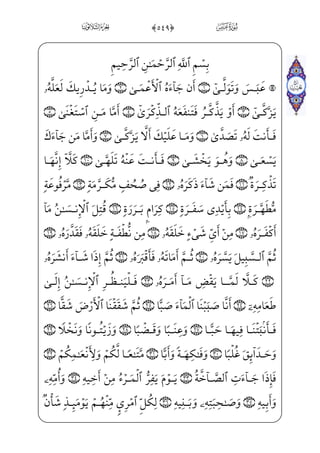 ﴿٥٤٩﴾
بِسْمِ ٱللَّهِ ٱلرَّحْمَٰنِ ٱلرَّحِيمِ
عَبَسَ وَتَوَلَّىٰٓ أَن جَآءَهُ ٱلْأَعْمَىٰ وَمَا يُدْرِيكَ لَعَلَّهُۥ
يَزَّكَّىٰٓ أَوْ يَذَّكَّرُ فَتَنفَعَهُ ٱلذِّكْرَىٰٓ أَمَّا مَنِ ٱسْتَغْنَىٰ
فَأَنتَ لَهُۥ تَصَدَّىٰ وَمَا عَلَيْكَ أَلَّا يَزَّكَّىٰ وَأَمَّا مَن جَآءَكَ
يَسْعَىٰ وَهُوَ يَخْشَىٰ فَأَنتَ عَنْهُ تَلَهَّىٰ كَلَّآ إِنَّهَا
تَذْكِرَةٌ فَمَن شَآءَ ذَكَرَهُۥ فِى صُحُفٍ مُّكَرَّمَةٍ مَّرْفُوعَةٍ
مُّطَهَّرَةٍۭ بِأَيْدِى سَفَرَةٍ كِرَامٍۭ بَرَرَةٍ قُتِلَ ٱلْإِنسَٰنُ مَآ
أَكْفَرَهُۥ مِنْ أَىِّ شَىْءٍ خَلَقَهُۥ مِن نُّطْفَةٍ خَلَقَهُۥ فَقَدَّرَهُۥ
ثُمَّ ٱلسَّبِيلَ يَسَّرَهُۥ ثُمَّ أَمَاتَهُۥ فَأَقْبَرَهُۥ ثُمَّ إِذَا شَآءَ أَنشَرَهُۥ
كَلَّا لَمَّا يَقْضِ مَآ أَمَرَهُۥ فَلْيَنظُرِ ٱلْإِنسَٰنُ إِلَىٰ
طَعَامِهِۦٓ أَنَّا صَبَبْنَا ٱلْمَآءَ صَبًّا ثُمَّ شَقَقْنَا ٱلْأَرْضَ شَقًّا
فَأَنۢبَتْنَا فِيهَا حَبًّا وَعِنَبًا وَقَضْبًا وَزَيْتُونًا وَنَخْلًا
وَحَدَآئِقَ غُلْبًا وَفَٰكِهَةً وَأَبًّا مَّتَٰعًا لَّكُمْ وَلِأَنْعَٰمِكُمْ
فَإِذَا جَآءَتِ ٱلصَّآخَّةُ يَوْمَ يَفِرُّ ٱلْمَرْءُ مِنْ أَخِيهِ وَأُمِّهِۦ
وَأَبِيهِ وَصَٰحِبَتِهِۦ وَبَنِيهِ لِكُلِّ ٱمْرِئٍ مِّنْهُمْ يَوْمَئِذٍ شَأْنٌ